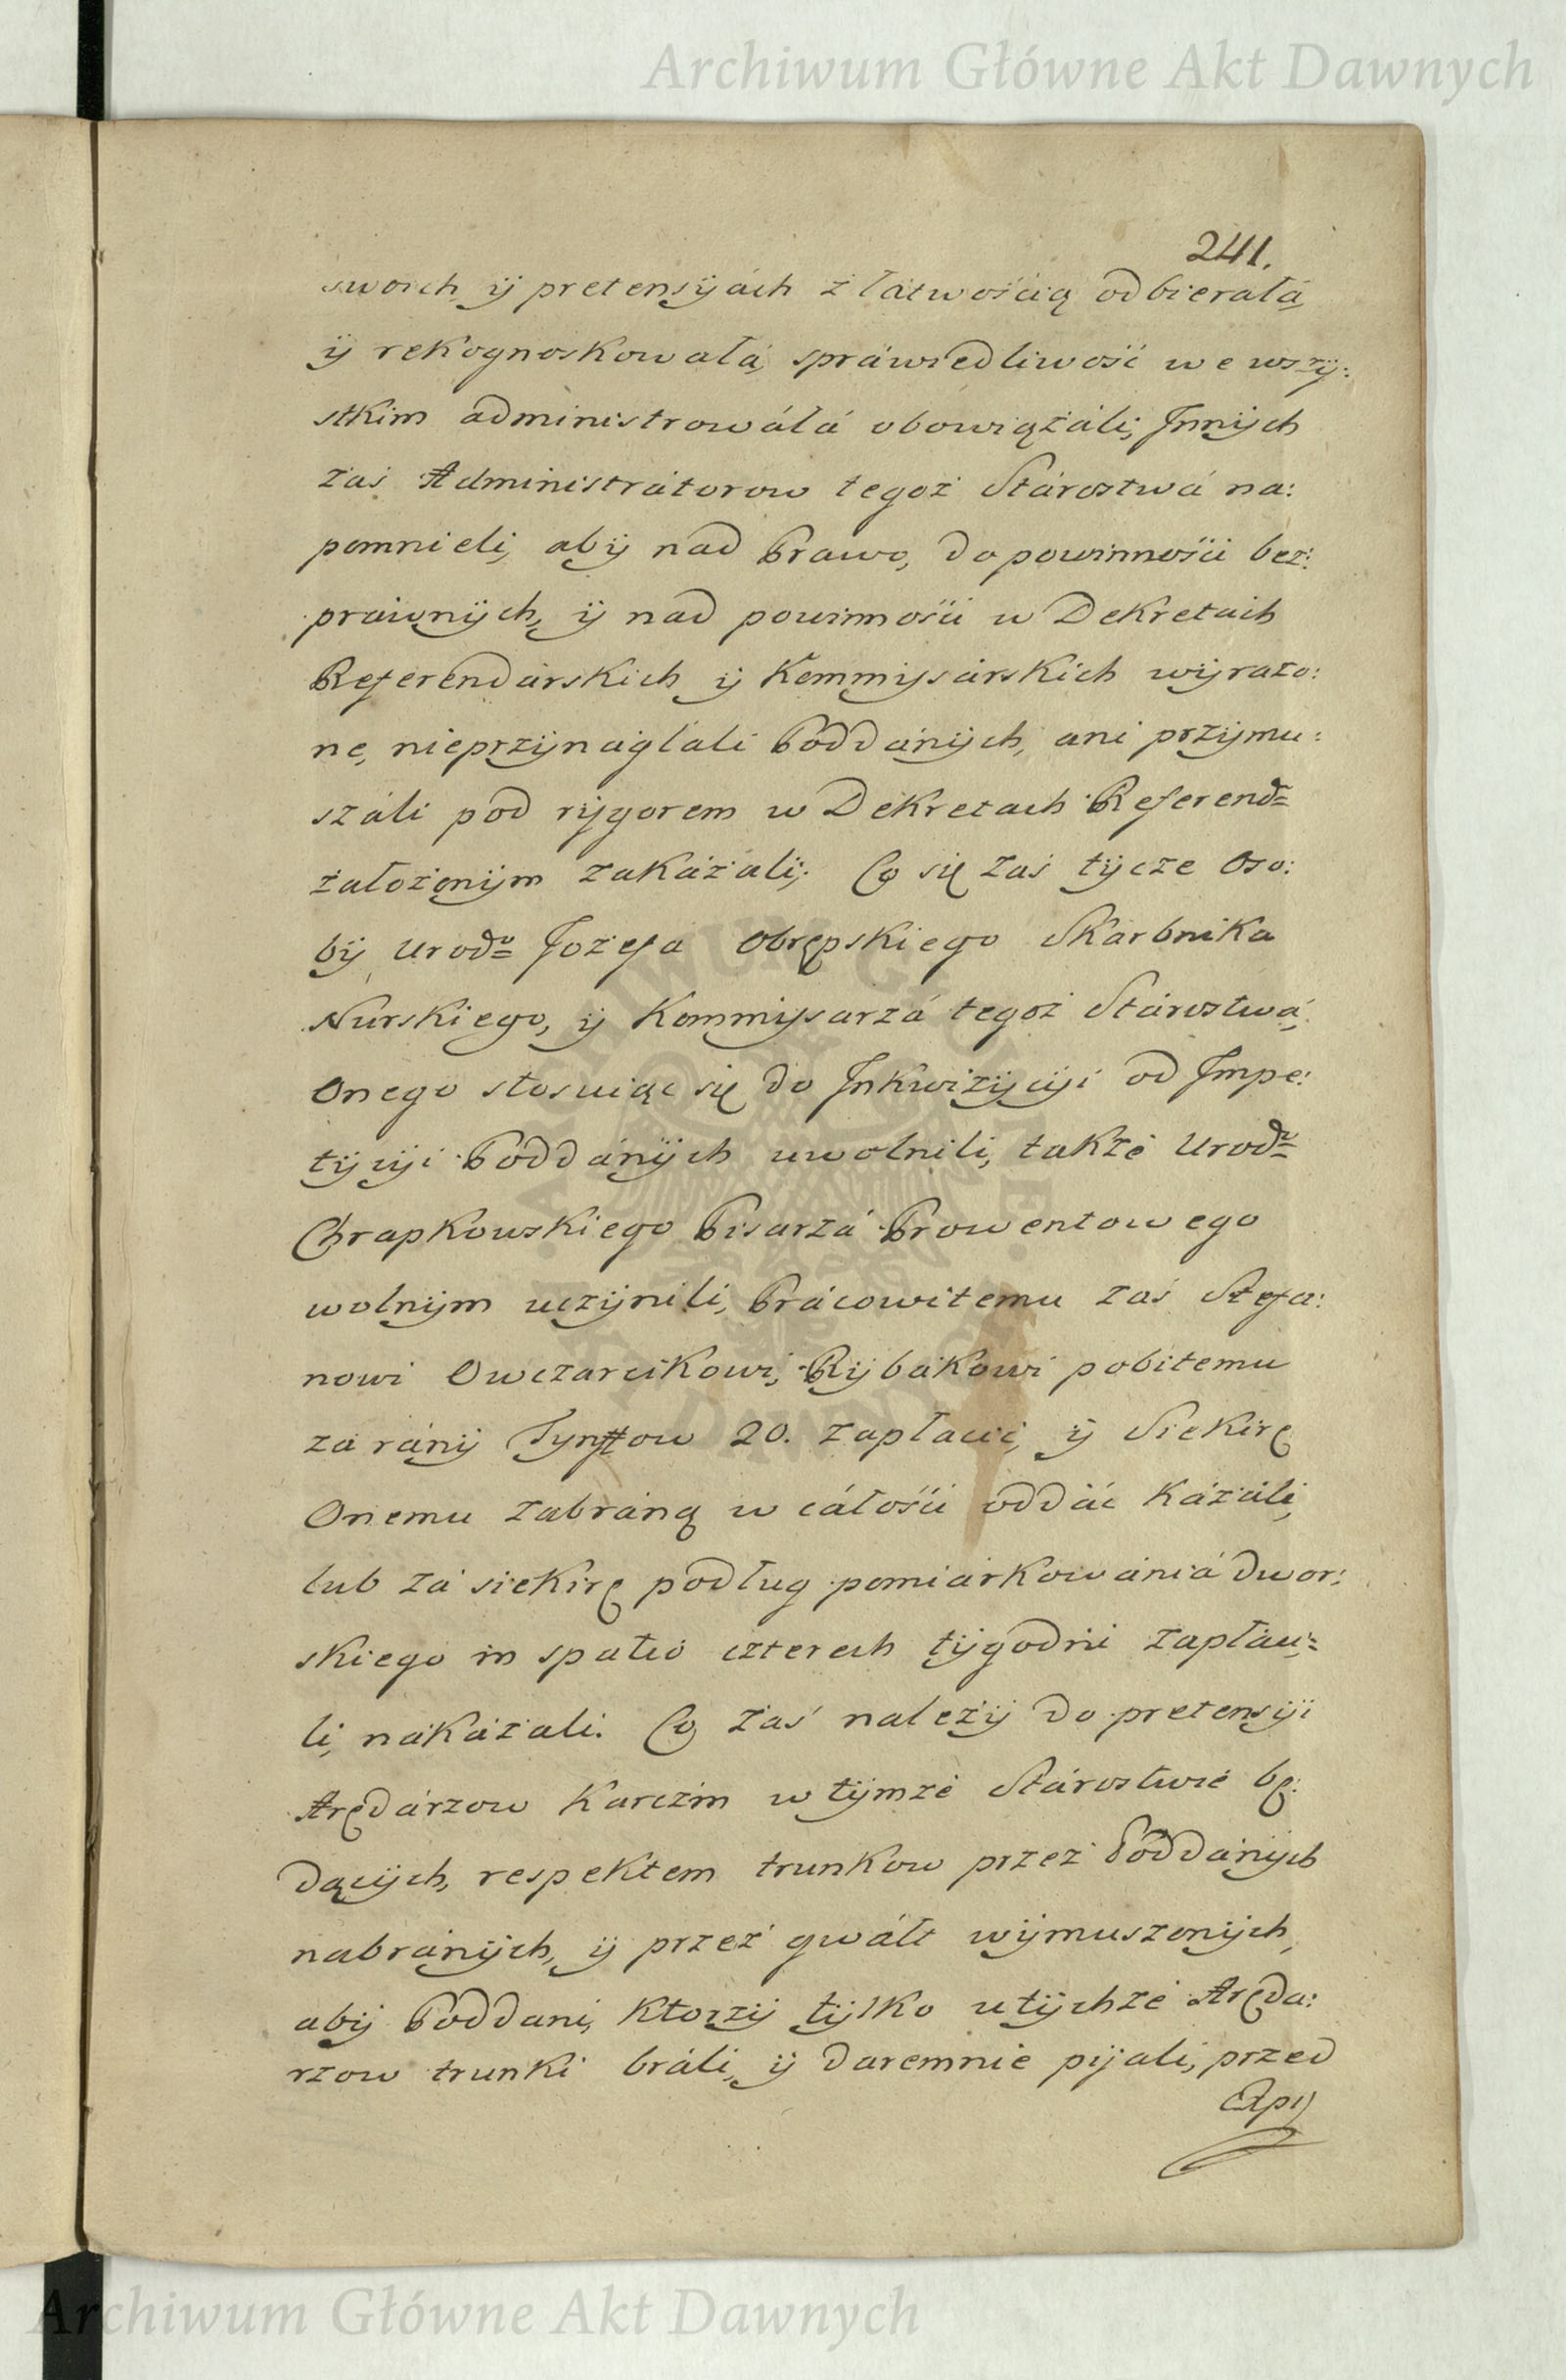 Archiwum Główne Akt Dawnych
241.
swoich ÿ pretensÿách z łátwością odbierałá,
ÿ rekognoskowałá, spráwiedliwość we wszÿ:
stkim administrowáłá obowiązáli, Innÿch
zaś Administrátorow tegoż Stárostwá na:
pomnieli, abÿ nad Prawo, do powinności bez:
prawnÿch, ÿ nad powinności w Dekretach
Referendárskich ÿ Kommÿsárskich wÿrażo:
ne, nieprzÿnaglali Poddánÿch, ani przÿmu:
száli pod rÿgorem w Dekretach Referend:
założonÿm zakázali; Co się zaś tÿcze Oso:
bÿ Urodo Jozefa Obrępskiego Skarbnika
Nurskiego, ÿ Kommÿsarzá tegoż Stárostwá,
Onego stosuiąc się do Inkwizÿcÿi od Impe:
tÿcÿi Poddánÿch uwolnili, także Urodo
Chrapkowskiego Pisarzá Prowentowego
wolnÿm uczÿnili, Prácowitemu zaś Stefa:
nowi Owczarcikowi, Rÿbakowi pobitemu
zá ránÿ Tynffow 20. zapłacić, ÿ Siekirę
Onemu zabráną w cáłości oddáć kázáli,
lub zá siekirę podług pomiárkowániá dwor:
skiego in spatio czterech tÿgodni zapłaci:
li, nakázali. Co zaś należÿ do pretensÿi
Arędárzow karczm w tÿmże Stárostwie bę:
dącÿch, respektem trunkow przez Poddánÿch
nabránÿch, ÿ przez gwałt wÿmuszonÿch,
abÿ Poddani, ktorzÿ tÿlko u tÿchże Aręda:
rzow trunki bráli, ÿ daremnie pÿali, przed
Archiwum Główne Akt Dawnych